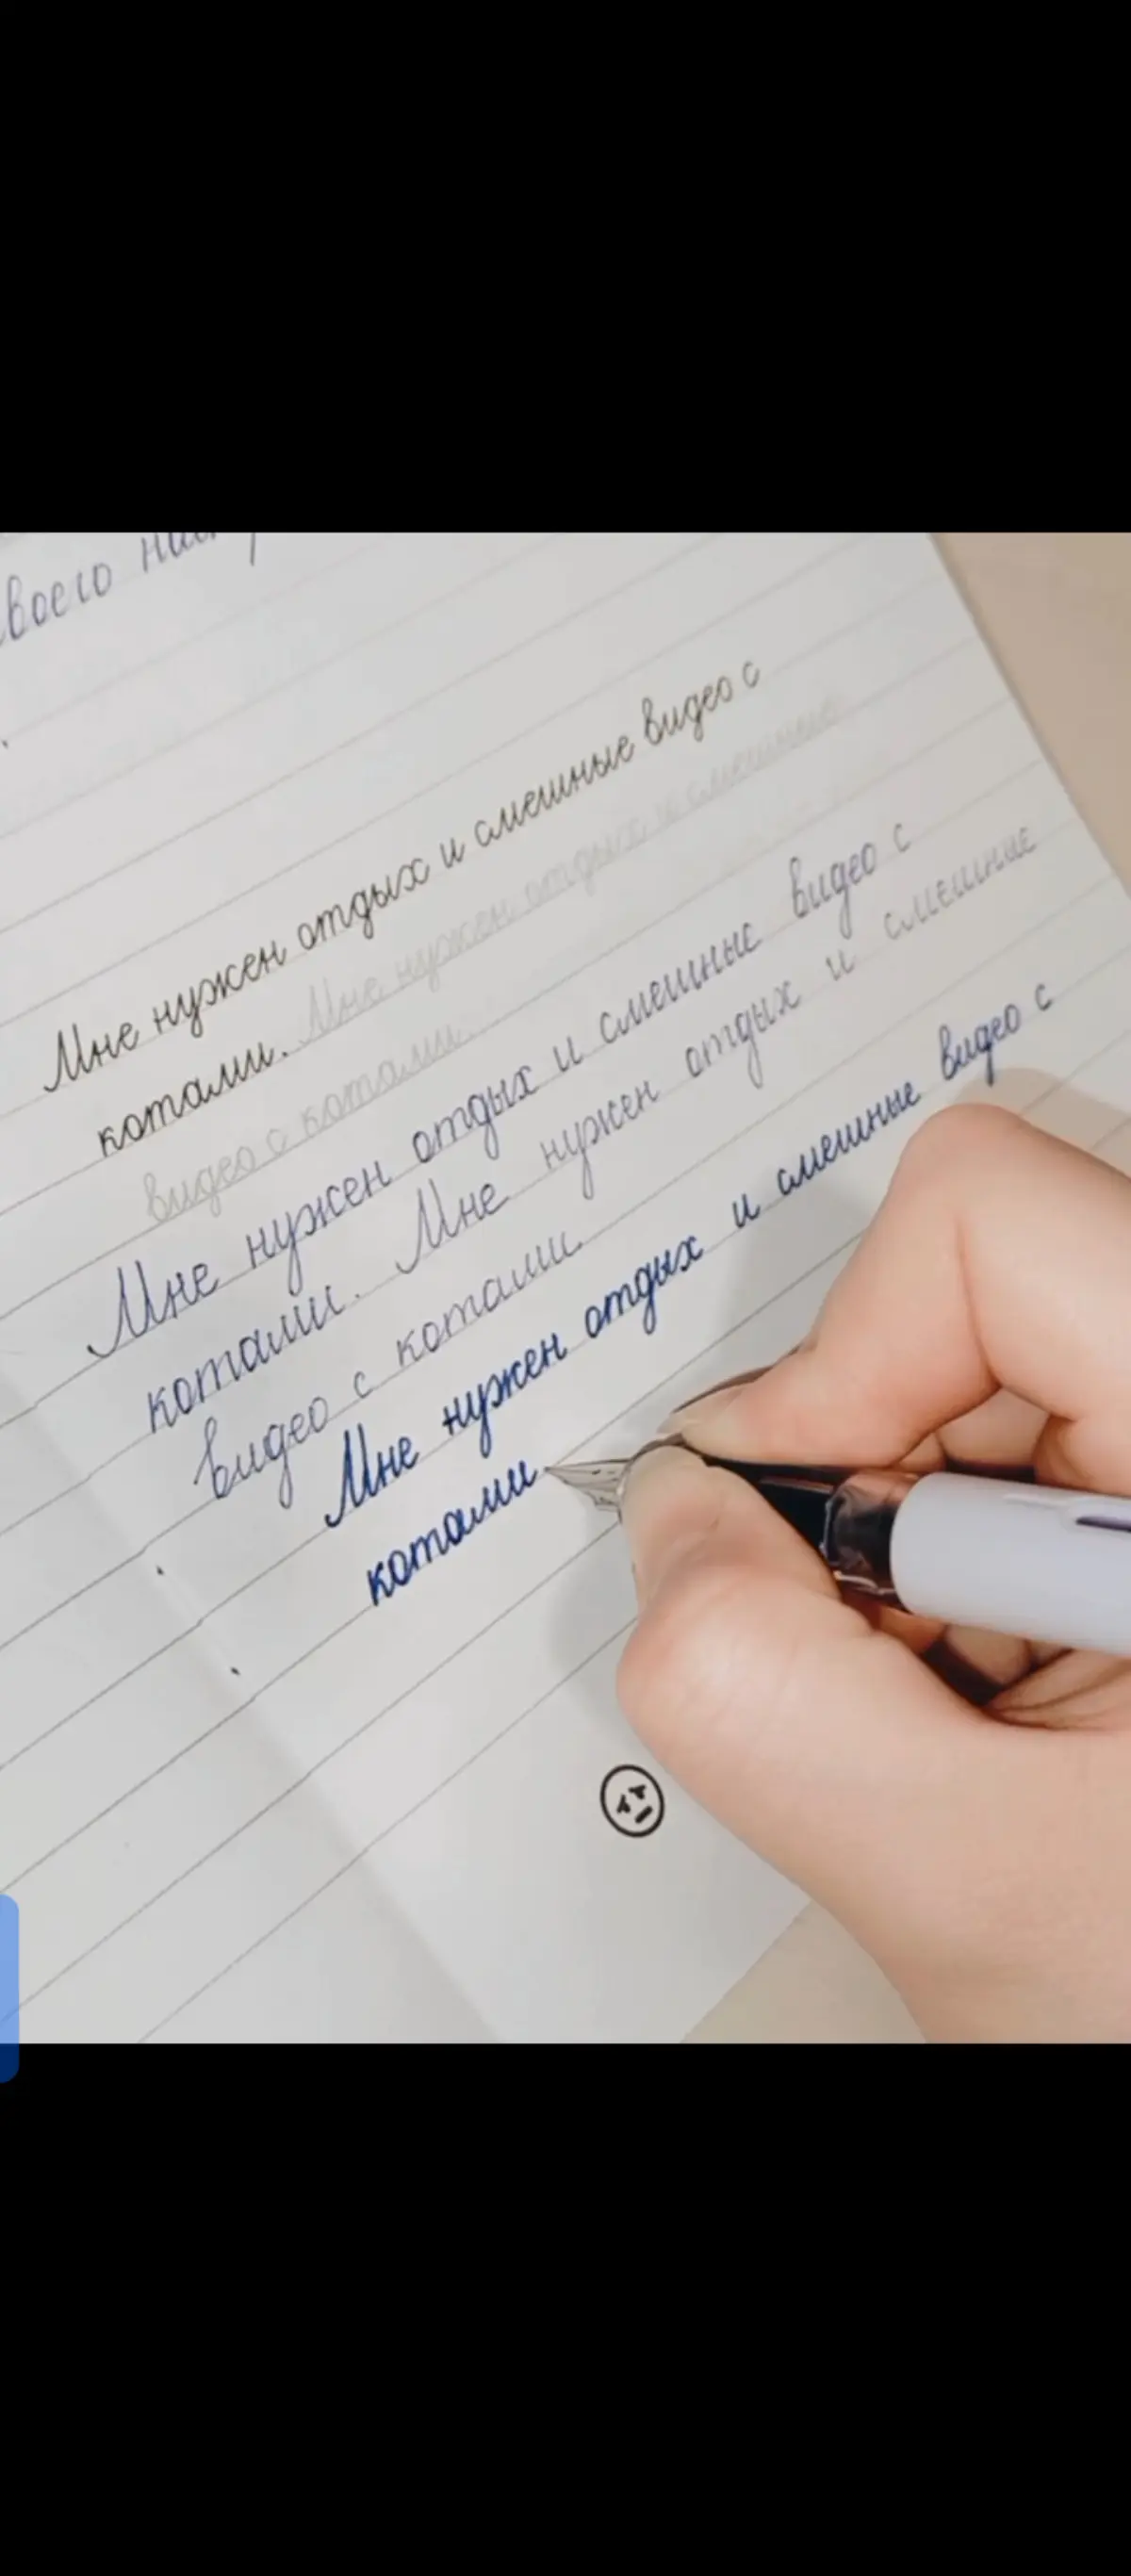 воего
Мне нужен отдых и смешные видео с
котами. Мне нужен отдых и смешные
видео с котами.
Мне нужен отдых и смешные видео с
котами. Мне нужен отдых и смешные
видео с котами.
Мне нужен отдых и смешные видео с
котами